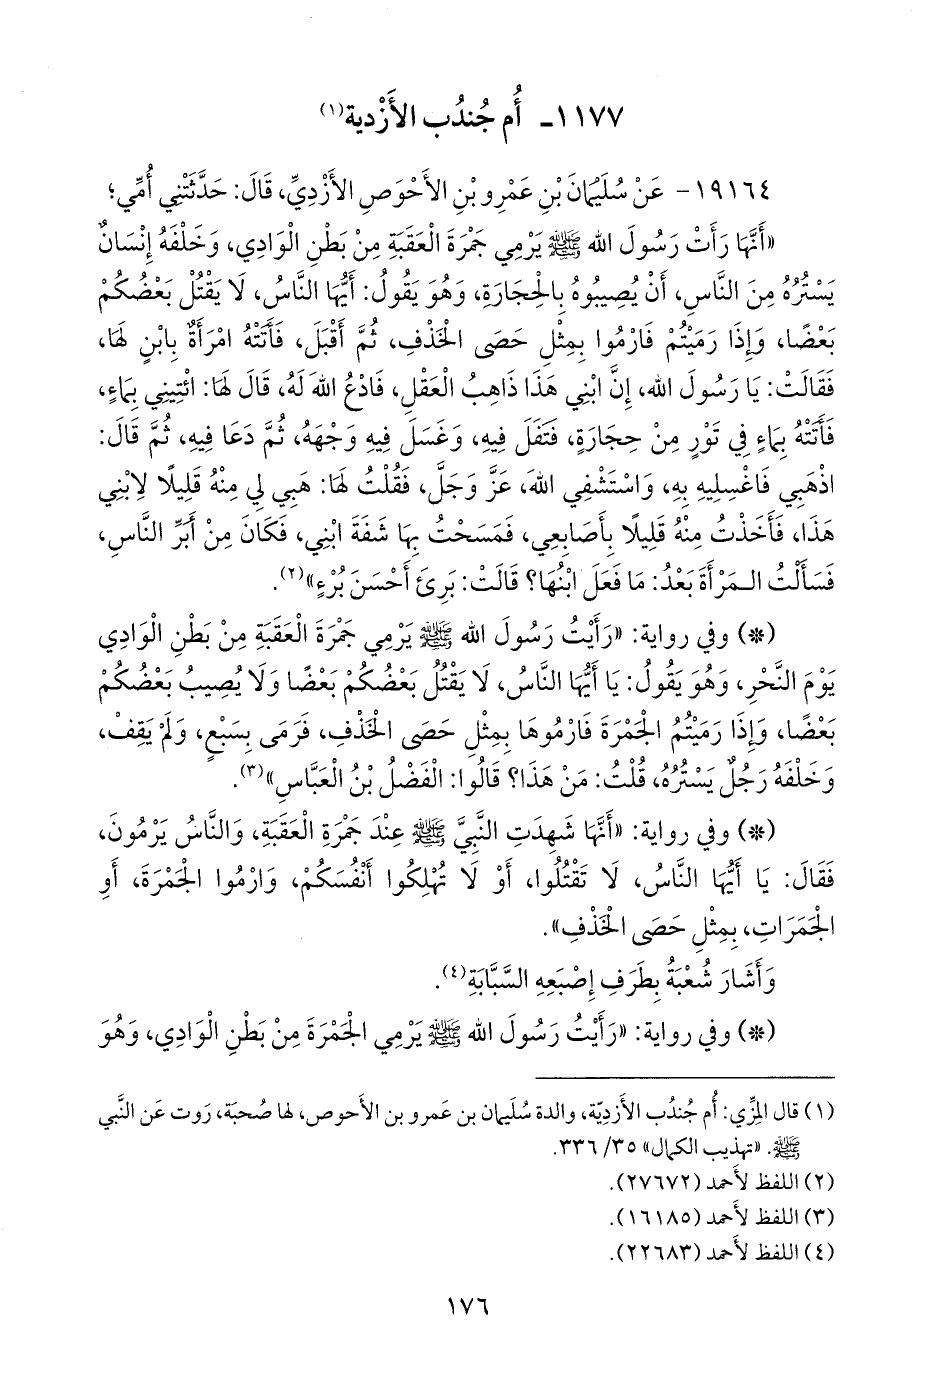 ١١٧٧ـ أُم جُندُب الأَزْدية(١)
١٩١٦٤- عَنْ سُلَيْمَانَ بْنِ عَمْرِو بْنِ الأَحْوَصِ الأَزْدِيِّ، قَالَ: حَدَّثَتْنِي أُمِّي؛
«أَنَّهَا رَأَتْ رَسُولَ الله ﷺ يَرْمِي جَمْرَةَ الْعَقَبَةِ مِنْ بَطْنِ الْوَادِي، وَخَلْفَهُ إِنْسَانٌ
يَسْتُرُهُ مِنَ النَّاسِ، أَنْ يُصِيبُوهُ بِالْحِجَارَةِ، وَهُوَ يَقُولُ: أَيُّهَا النَّاسُ، لَا يَقْتُلْ بَعْضُكُمْ
بَعْضًا، وَإِذَا رَمَيْتُمْ فَارْمُوا بِمِثْلِ حَصَى الْخَذْفِ، ثُمَّ أَقْبَلَ، فَأَتَتْهُ امْرَأَةٌ بِابْنٍ لَهَا،
فَقَالَتْ: يَا رَسُولَ الله، إِنَّ ابْنِي هَذَا ذَاهِبُ الْعَقْلِ، فَادْعُ اللهَ لَهُ، قَالَ لَهَا: ائْتِينِي بِمَاءٍ،
فَأَتَتْهُ بِمَاءٍ فِي تَوْرٍ مِنْ حِجَارَةٍ، فَتَفَلَ فِيهِ، وَغَسَلَ فِيهِ وَجْهَهُ، ثُمَّ دَعَا فِيهِ، ثُمَّ قَالَ:
اذْهَبِي فَاغْسِلِيهِ بِهِ، وَاسْتَشْفِي اللهَ، عَزَّ وَجَلَّ، فَقُلْتُ لَهَا: هَبِي لِي مِنْهُ قَلِيلًا لِابْنِي
هَذَا، فَأَخَذْتُ مِنْهُ قَلِيلًا بِأَصَابِعِي، فَمَسَحْتُ بِهَا شَفَةَ ابْنِي، فَكَانَ مِنْ أَبَرِّ النَّاسِ،
فَسَأَلْتُ الْـمَرْأَةَ بَعْدُ: مَا فَعَلَ ابْنُهَا؟ قَالَتْ: بَرِئَ أَحْسَنَ بُرْءٍ»(٢).
(*) وفي رواية: «رَأَيْتُ رَسُولَ الله ﷺ يَرْمِي جَمْرَةَ الْعَقَبَةِ مِنْ بَطْنِ الْوَادِي
يَوْمَ النَّحْرِ، وَهُوَ يَقُولُ: يَا أَيُّهَا النَّاسُ، لَا يَقْتُلُ بَعْضُكُمْ بَعْضًا وَلَا يُصِيبُ بَعْضُكُمْ
بَعْضًا، وَإِذَا رَمَيْتُمُ الْجَمْرَةَ فَارْمُوهَا بِمِثْلِ حَصَى الْخَذْفِ، فَرَمَى بِسَبْعٍ، وَلَمْ يَقِفْ،
وَخَلْفَهُ رَجُلٌ يَسْتُرُهُ، قُلْتُ: مَنْ هَذَا؟ قَالُوا: الْفَضْلُ بْنُ الْعَبَّاسِ»(٣).
(*) وفي رواية: «أَنَّهَا شَهِدَتِ النَّبِيَّ ﷺ عِنْدَ جَمْرَةِ الْعَقَبَةِ، وَالنَّاسُ يَرْمُونَ،
فَقَالَ: يَا أَيُّهَا النَّاسُ، لَا تَقْتُلُوا، أَوْ لَا تُهْلِكُوا أَنْفُسَكُمْ، وَارْمُوا الْجَمْرَةَ، أَوِ
الْجَمَرَاتِ، بِمِثْلِ حَصَى الْخَذْفِ».
وَأَشَارَ شُعْبَةُ بِطَرَفِ إِصْبَعِهِ السَّبَّابَةِ(٤).
(*) وفي رواية: «رَأَيْتُ رَسُولَ الله ﷺ يَرْمِي الْجَمْرَةَ مِنْ بَطْنِ الْوَادِي، وَهُوَ
(١) قال المِزِّي: أُم جُندُب الأَزدِيّة، والدة سُليمان بن عَمرو بن الأَحوص، لها صُحبَة، رَوت عَن النَّبي
ﷺ. «تهذيب الكمال» ٣٥/ ٣٣٦.
(٢) اللفظ لأَحمد (٢٧٦٧٢).
(٣) اللفظ لأَحمد (١٦١٨٥).
(٤) اللفظ لأَحمد (٢٢٦٨٣).
١٧٦